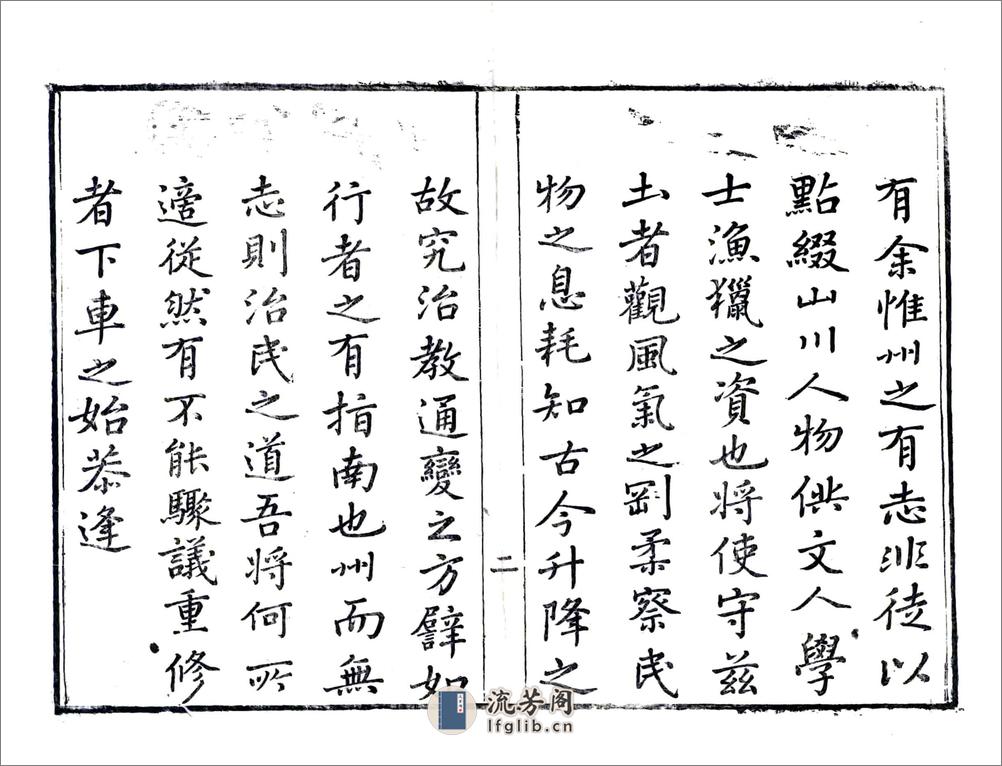 有余惟州之有志非徒以
點綴山川人物供文人學
士漁獵之資也將使守茲
土者觀風氣之剛柔察民
物之息耗知古今升降之
二
故究治教通變之方譬如
行者之有指南也州而無
志則治民之道吾將何所
適從然有不能驟議重修
者下車之始恭逢
流芳阁
lfglib.cn